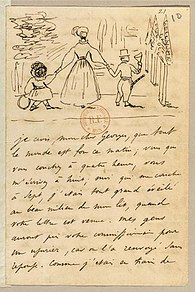 21 10
je crois, mon cher Georges, que tout
le monde est fou ce matin; vous qui
vous couchez à quatre heures, vous
m'écrivez à huit, moi qui me couche
à sept, j'étais tout grand éveillé
au beau milieu de mon lit, quand
votre lettre est venue. mes gens
auront pris votre commissionnaire pour
un usurier, car on l'a renvoyé sans
réponse. Comme j'étais en train de